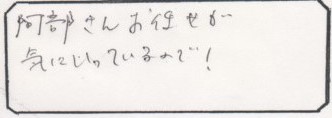 阿部さんお任せが
気に入っているので！